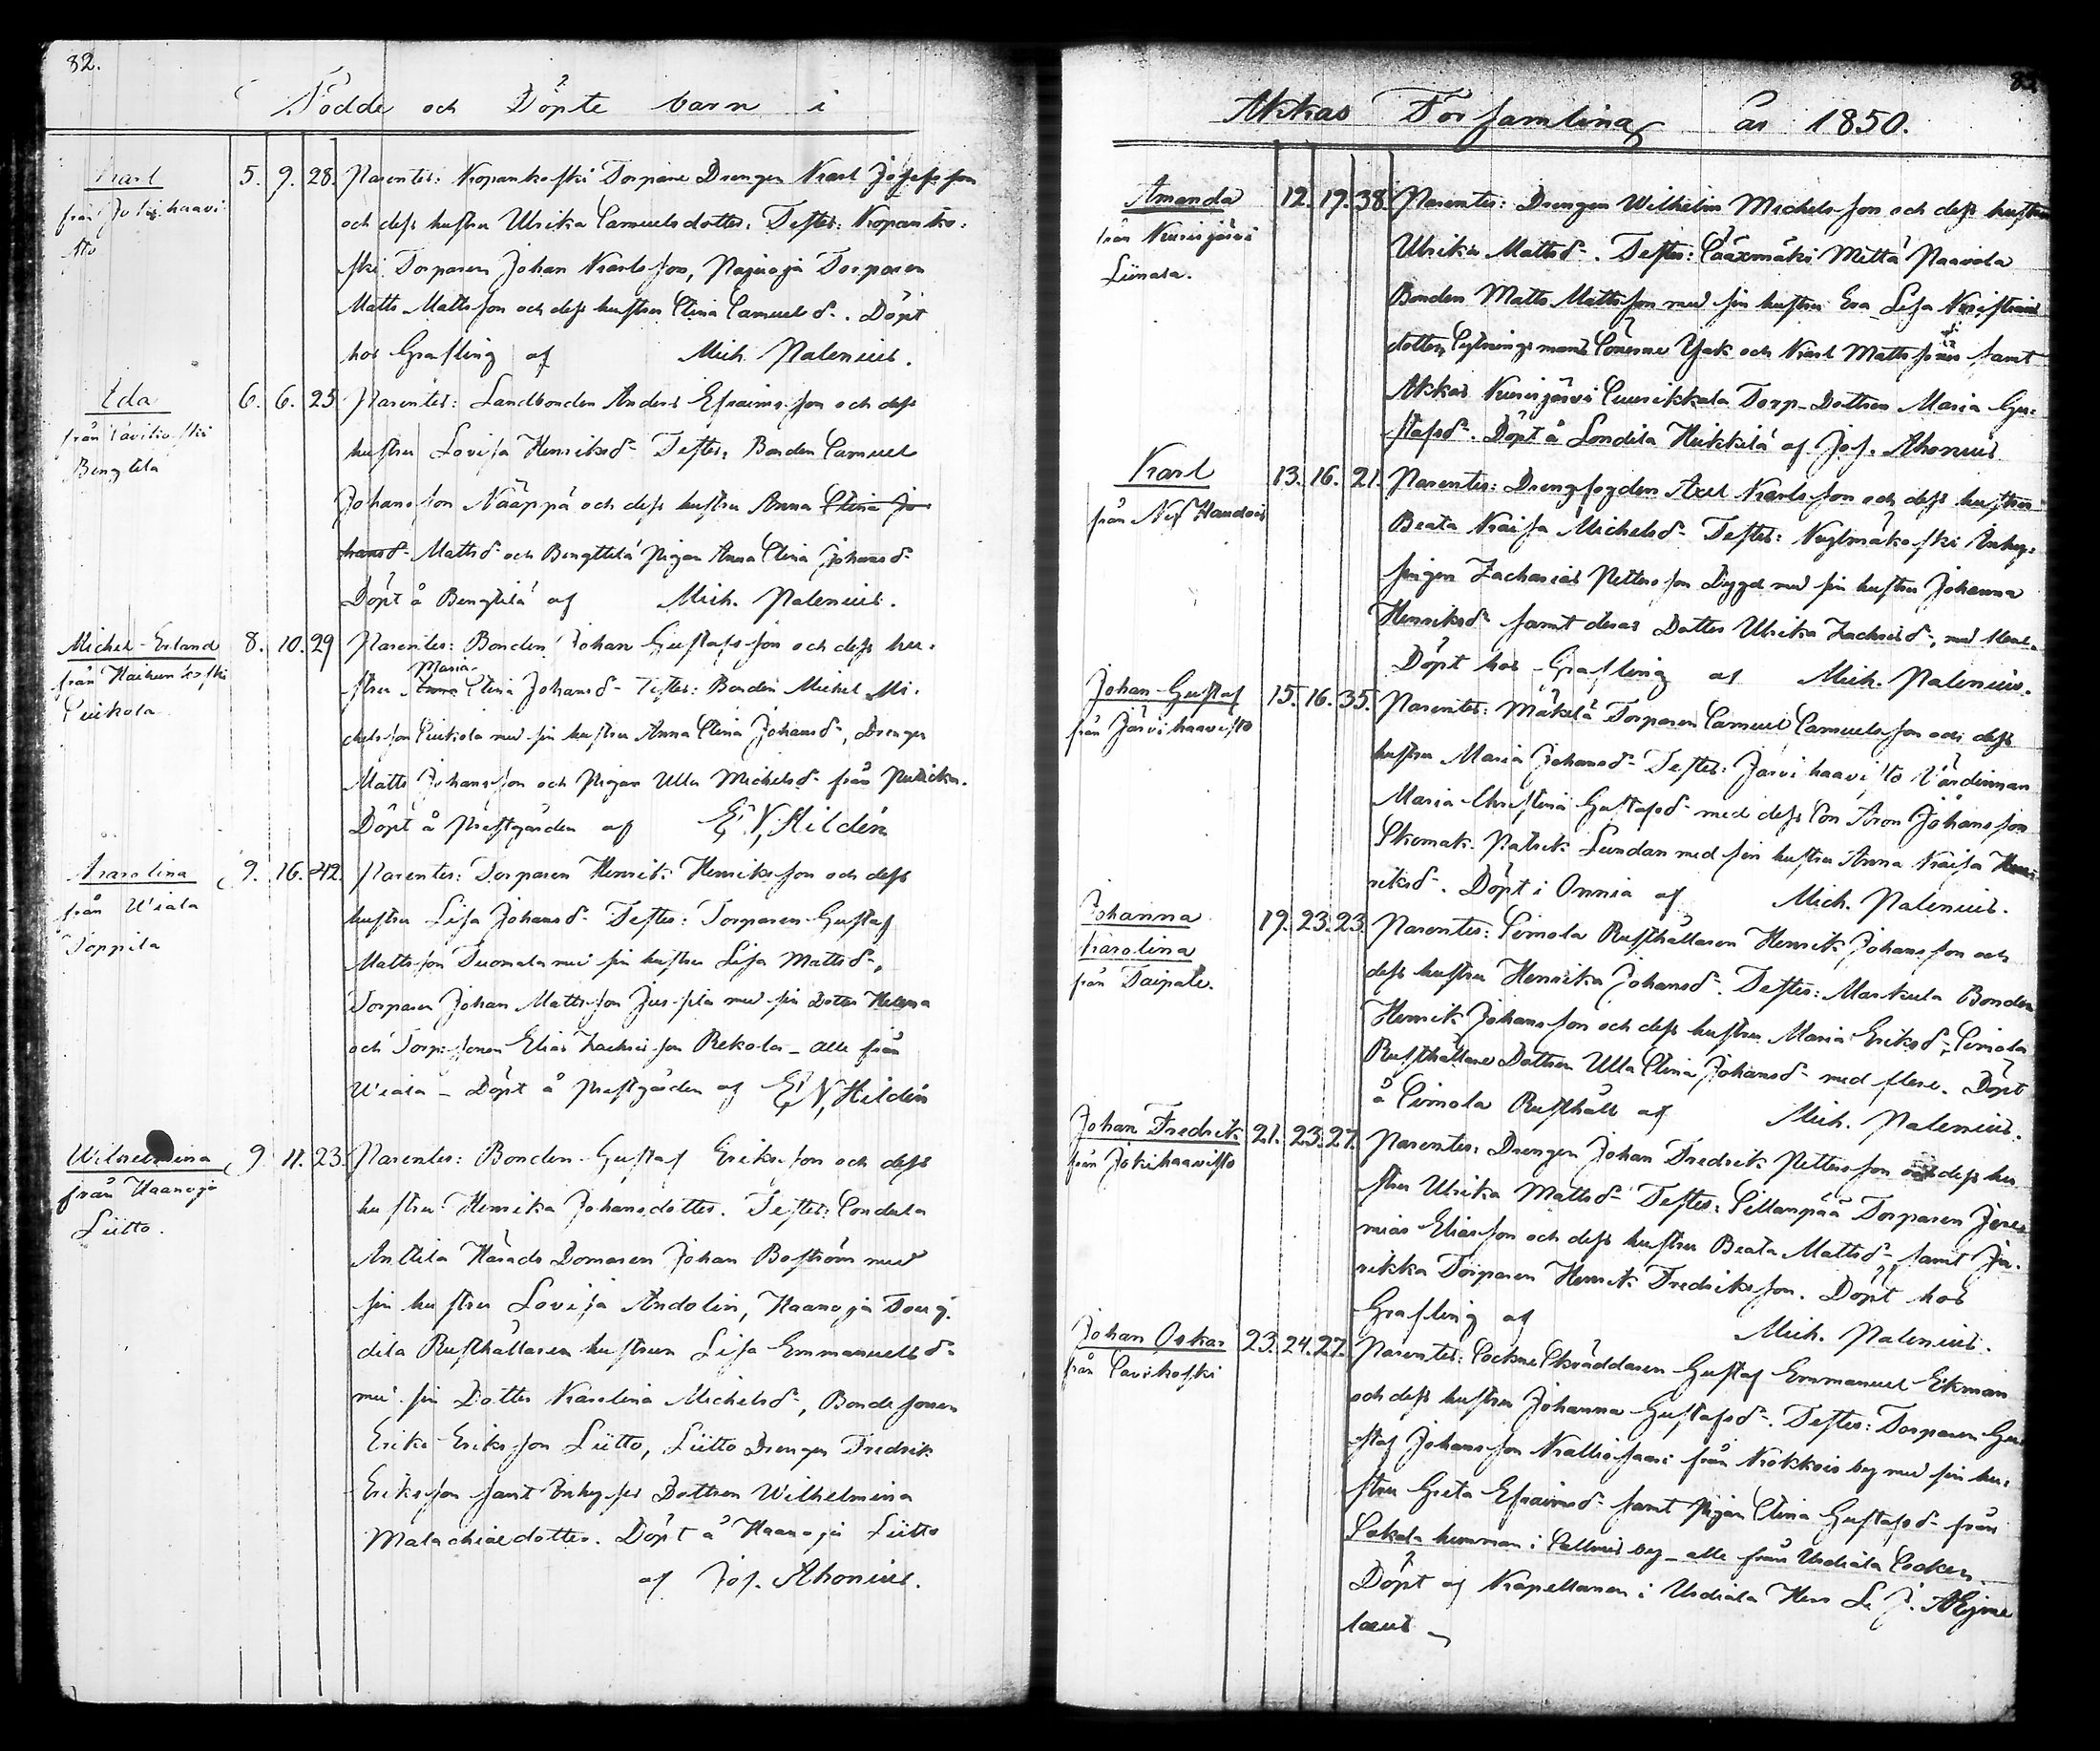 82.
Födde och Döpte barn i
Karl
från Jokihaavi
sto
5. 9. 28.
Parentes: Kopankoski Torpare Drengen Karl Josefsson
och dess hustru Ulrika Samuelsdotter. Testes: Kopanko:
ski Torparen Johan Karlsson, Torparen
Matts Mattsson och dess hustru Stina Samuelsd. Döpt
hos Grafling af Mich. Palenius.
Eda
från Saviko ski
Bengtila
6. 6. 25
Parentes: Landbonden Anders Efraimsson och dess
hustru Lovisa Henriksd. Testes: Bonden Samuel
Johansson Nääppä och dess hustru Anna Stina Jo
hansd. Mattsd och Bengttilä Pigan Anna Stina Johansd
Döpt å Bengtilä af Mich. Palenius.
Michel-Erland
från Haihunkoski
Suikola
8. 10. 29
Parentes: Bonden Johan Gustafsson och dess hu-
Maria
stru Anna Stina Johansd. Testes: Bonden Michel Mi-
chelsson Suikola med sin hustru Anna Stina Johansd, Drengen
Matts Johansson och Pigan Ulla Michelsd från
Döpt å Prestgården af E. N. Hildén
Karolina
från Wiala
Toppila
9. 16. 42.
Parentes: Torparen Henrik Henriksson och dess
hustru Lisa Johansd. Testes: Torparen Gustaf
Mattsson Tuomala med sin hustru Lisa Mattsd,
Torparen Johan Mattsson Jussila med sin Dotter Helena
och Torp: sonen Elias Zachrisson Rekola - alle från
Wiala - Döpt å Prestgården af E. N. Hildén
Wilhelmina
från Haanoja
Liitto.
9 11. 23.
Parentes: Bonden Gustaf Eriksson och dess
hustru Henrika Johansdotter. Testes: Sondala
Anttila Härads Domaren Johan Boström med
sin hustru Lovisa Andolin, Haanoja
dila Rusthållaren hustrun Lisa Emmanuelsd
med sin Dotter Karolina Michelsd, Bondesonen
Erik Eriksson Liitto, Liitto Drengen Fredrik
Eriksson samt Inhyses Dottren Wilhelmina
Malachiaedotter. Döpt å Haanoja Liitto
af Jos. Ahonius.
Akkas Församling år 1850.
Amanda
från Kurisjärvi
Liinala.
12. 19. 38.
Parentes: Drengen Wilhelm Michelsson och dess hustru
Ulrika Mattsd. Testes: Sääxmäki Mittä Paavola
Bonden Matts Mattsson med sin hustru Eva Lisa Kristians
dotter, Sytningsmans Sönerne Isak och Karl Mattssöner samt
Akkas Kurisjärvi Suurikkala Torp-Dottren Maria Gu-
stafsd. Döpt å Sondila Heikkilä af Jos. Ahonius
Karl
från Nif Handois
13. 16. 21.
Parentes: Drengfogden Axel Karlsson och dess hustru
Beata Kaisa Michelsd. Testes: Kylmäkoski Inhy-
singen Zacharias Pettersson Dygd med sin hustru Johanna
Henriksd samt deras Dotter Ulrika Zachrisd, med flere.
Döpt hos Grafling af Mich. Palenius.
Johan Gustaf
från Järvihaavisto
15. 16. 35.
Parentes: Mäkelä Torparen Samuel Samuelsson och dess
hustru Maria Johansd. Testes: Jarvihaavisto Värdinnan
Maria Christina Gustafsd med dess Son Aron Johansson
Skomak. Patrik Lundan med sin hustru Anna Kaisa Hen-
riksd. Döpt i Onnia af Mich. Palenius.
Johanna
Karolina
från Taipale.
19. 23. 23.
Parentes: Simola Rusthållaren Henrik Johansson och
dess hustru Henrika Johansd. Testes: Markula Bonden
Henrik Johansson och dess hustru Maria Eriksd, Simola
Rusthållare Dottren Ulla Stina Johansd med flere. Döpt
å Simola Rusthåll af Mich. Palenius.
Johan Fredrik
från Jokihaavisto
21. 23. 27.
Parentes: Drengen Johan Fredrik Pettersson och dess hu
stru Ulrika Mattsd. Testes: Sillanpää Torparen Jere
mias Eliasson och dess hustru Beata Mattsd, samt
rikka Torparen Henrik Fredriksson. Döpt hos
Grafling af Mich. Palenius.
Johan Oskar
från Savikoski
23. 24. 27.
Parentes: Sockne Skräddaren Gustaf Emmanuel Ekman
och dess hustru Johanna Gustafsd. Testes: Torparen Gu
staf Johansson Kalliosaari från Kokkois by med sin hu-
stru Greta Efraimsd samt Pigan Stina Gustafsd från
hemman i by - alle från Urdiala Socken.
Döpt af Kapellanen i Urdiala Herr
laeus